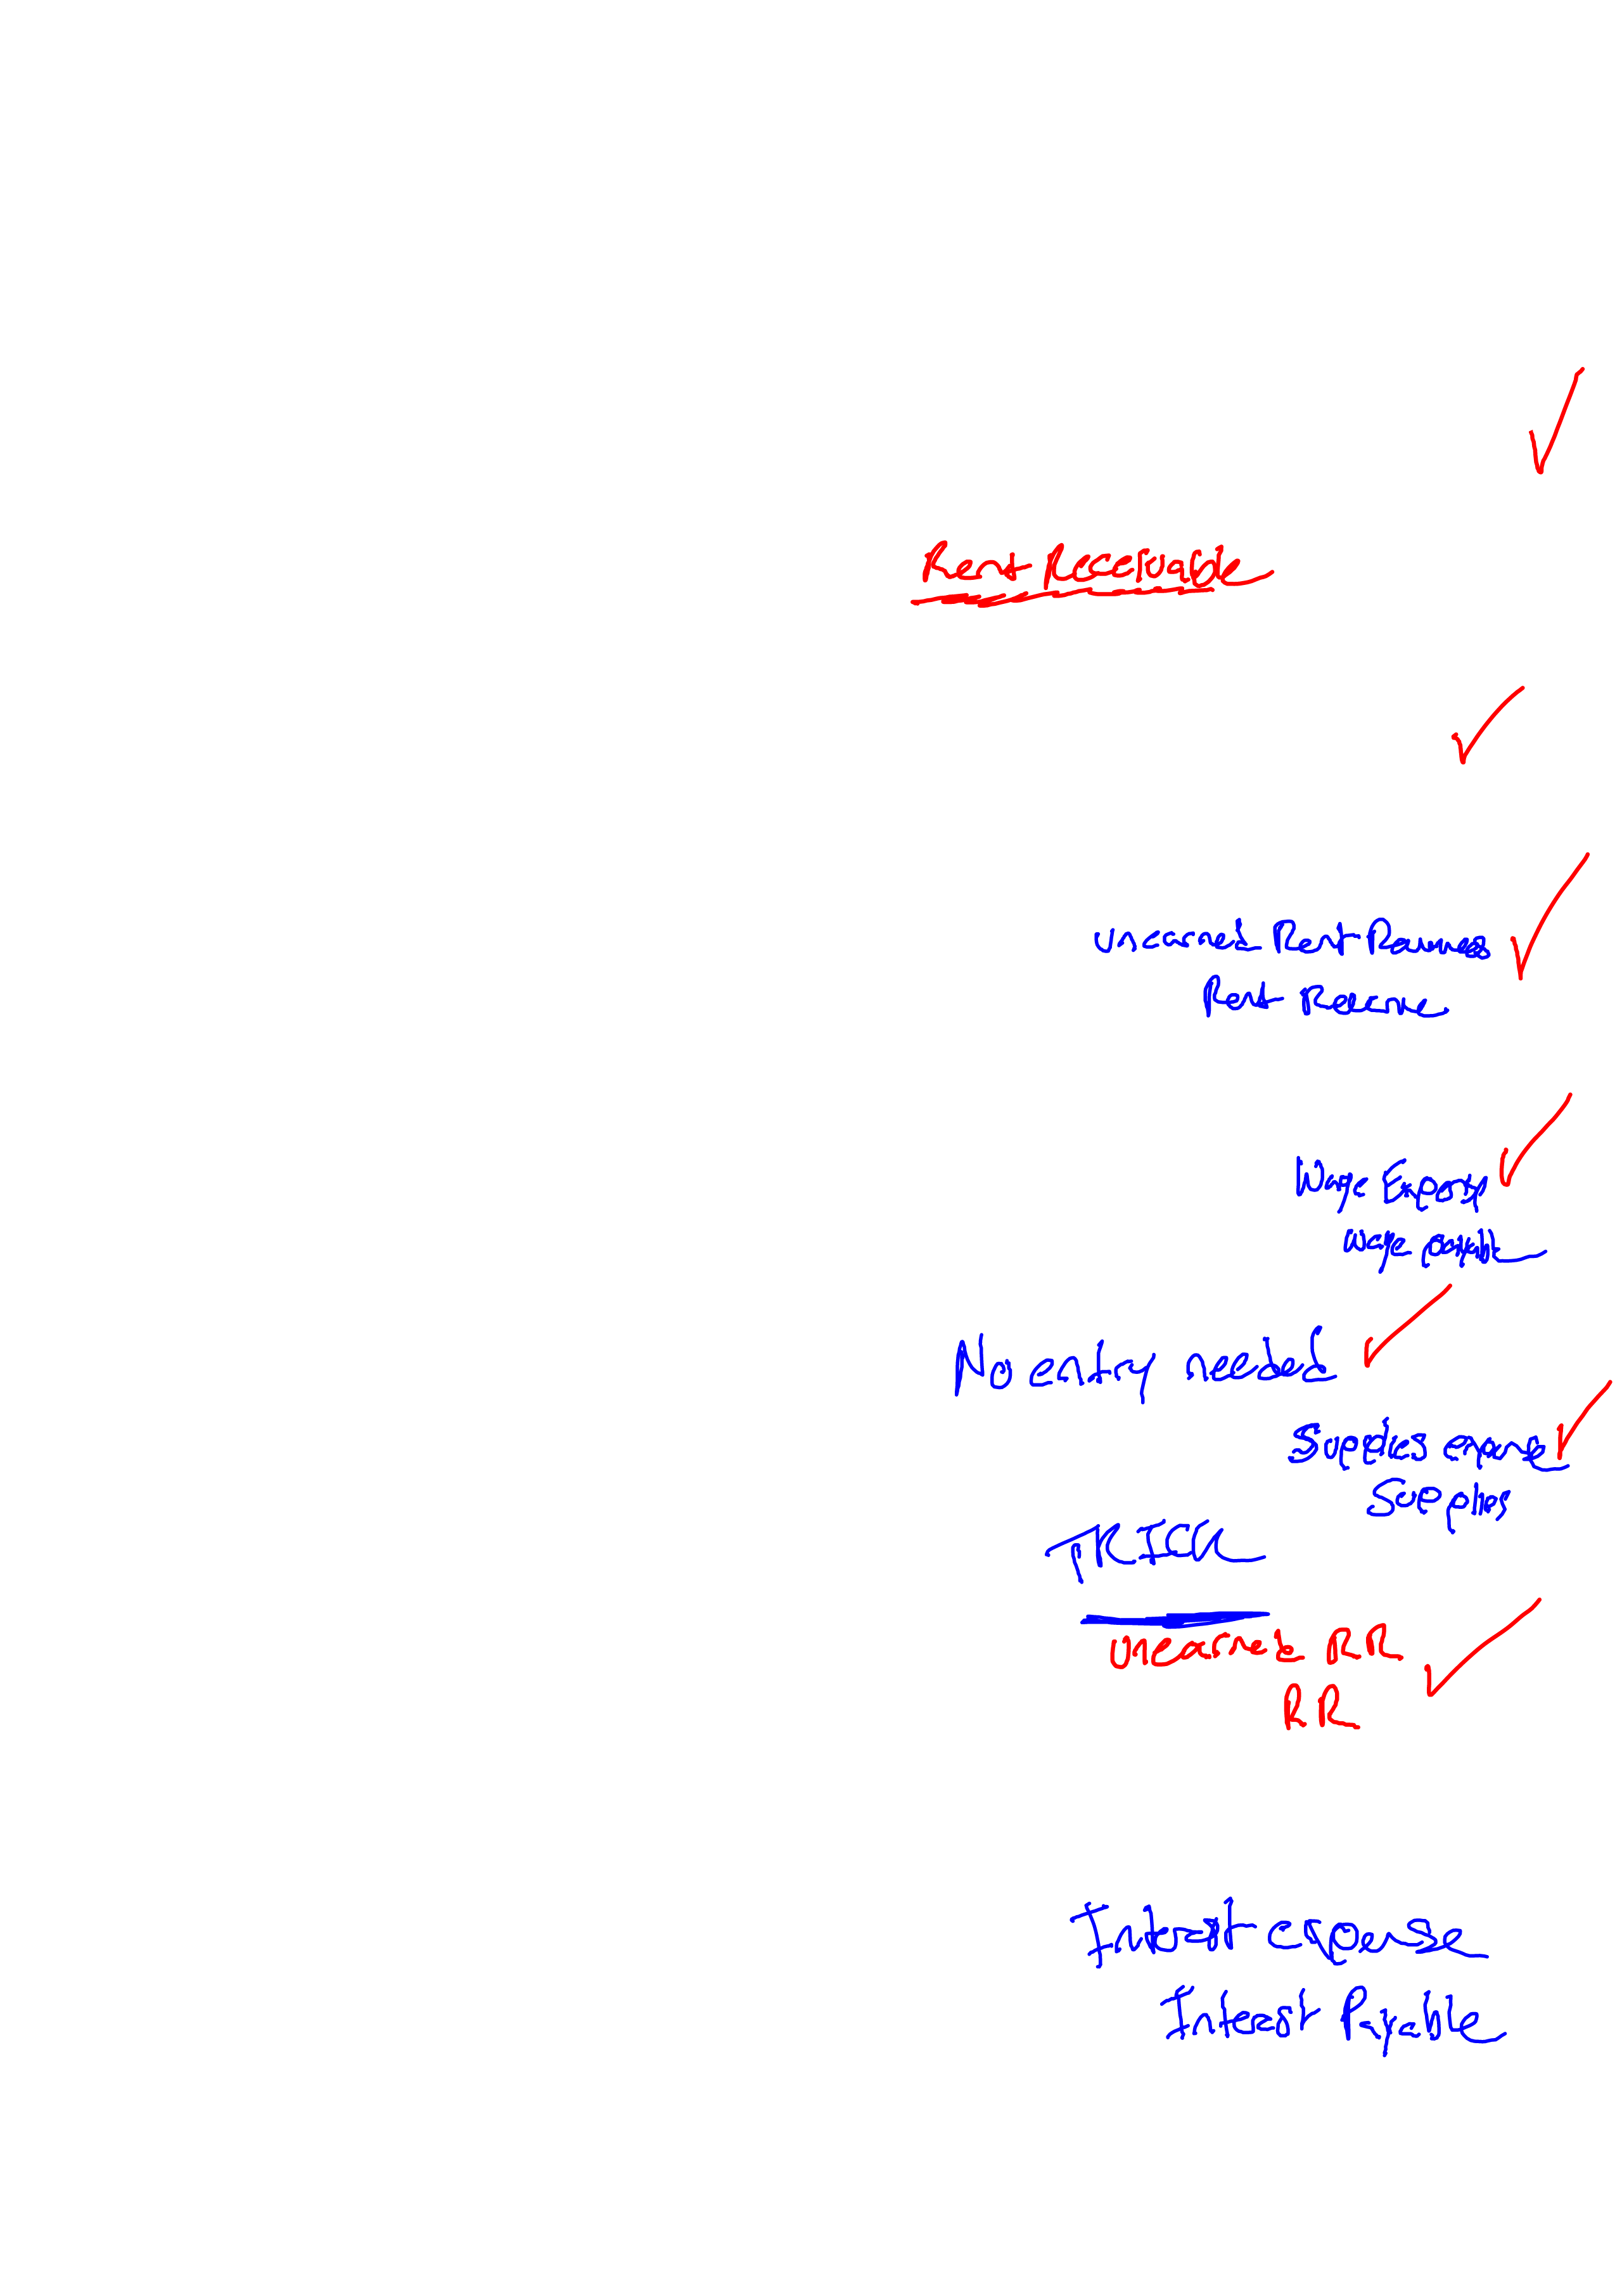 Rent Receivable
Unearned Rent Revenues
Rent Revenue
Wage Expense
wage payable
No entry needed
Supplies expense
Supplies
TRICK
unearned RR
RR
Interest expense
Interest Payable